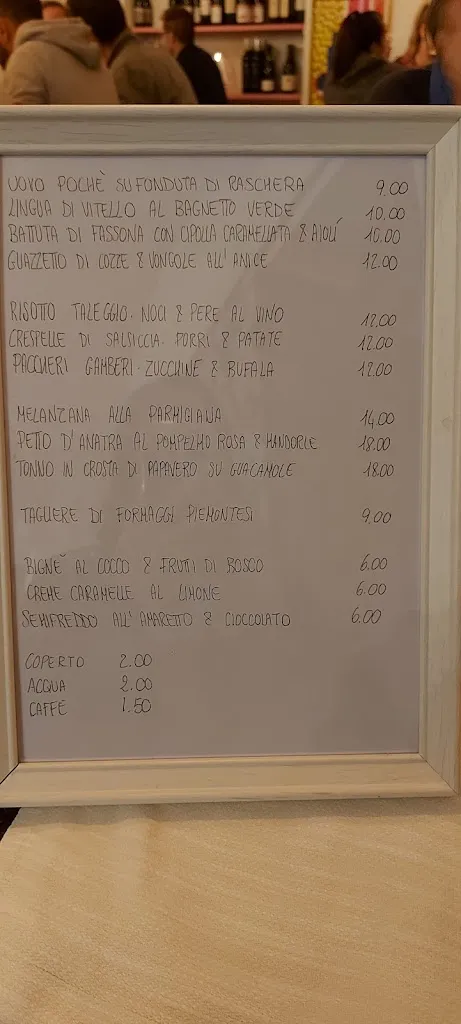 UOVO POCHÈ SU FONDUTA DI RASCHERA 9.00
LINGUA DI VITELLO AL BAGNETTO VERDE 10.00
BATTUTA DI FASSONA CON CIPOLLA CARAMELLATA & AIOLÍ 10.00
GUAZZETTO DI COZZE & VONGOLE ALL'ANICE 12.00
RISOTTO TALEGGIO. NOCI & PERE AL VINO 12.00
CRESPELLE DI SALSICCIA. PORRI & PATATE 12.00
PACCHERI GAMBERI. ZUCCHINE & BUFALA 12.00
MELANZANA ALLA PARMIGIANA 14.00
PETTO D'ANATRA AL POMPELMO ROSA & MANDORLE 18.00
TONNO IN CROSTA DI PAPAVERO SU GUACAMOLE 18.00
TAGLIERE DI FORMAGGI PIEMONTESI 9.00
BIGNÈ AL COCCO & FRUTTI DI BOSCO 6.00
CREME CARAMELLE AL LIMONE 6.00
SEMIFREDDO ALL'AMARETTO & CIOCCOLATO 6.00
COPERTO 2.00
ACQUA 2.00
CAFFÈ 1.50